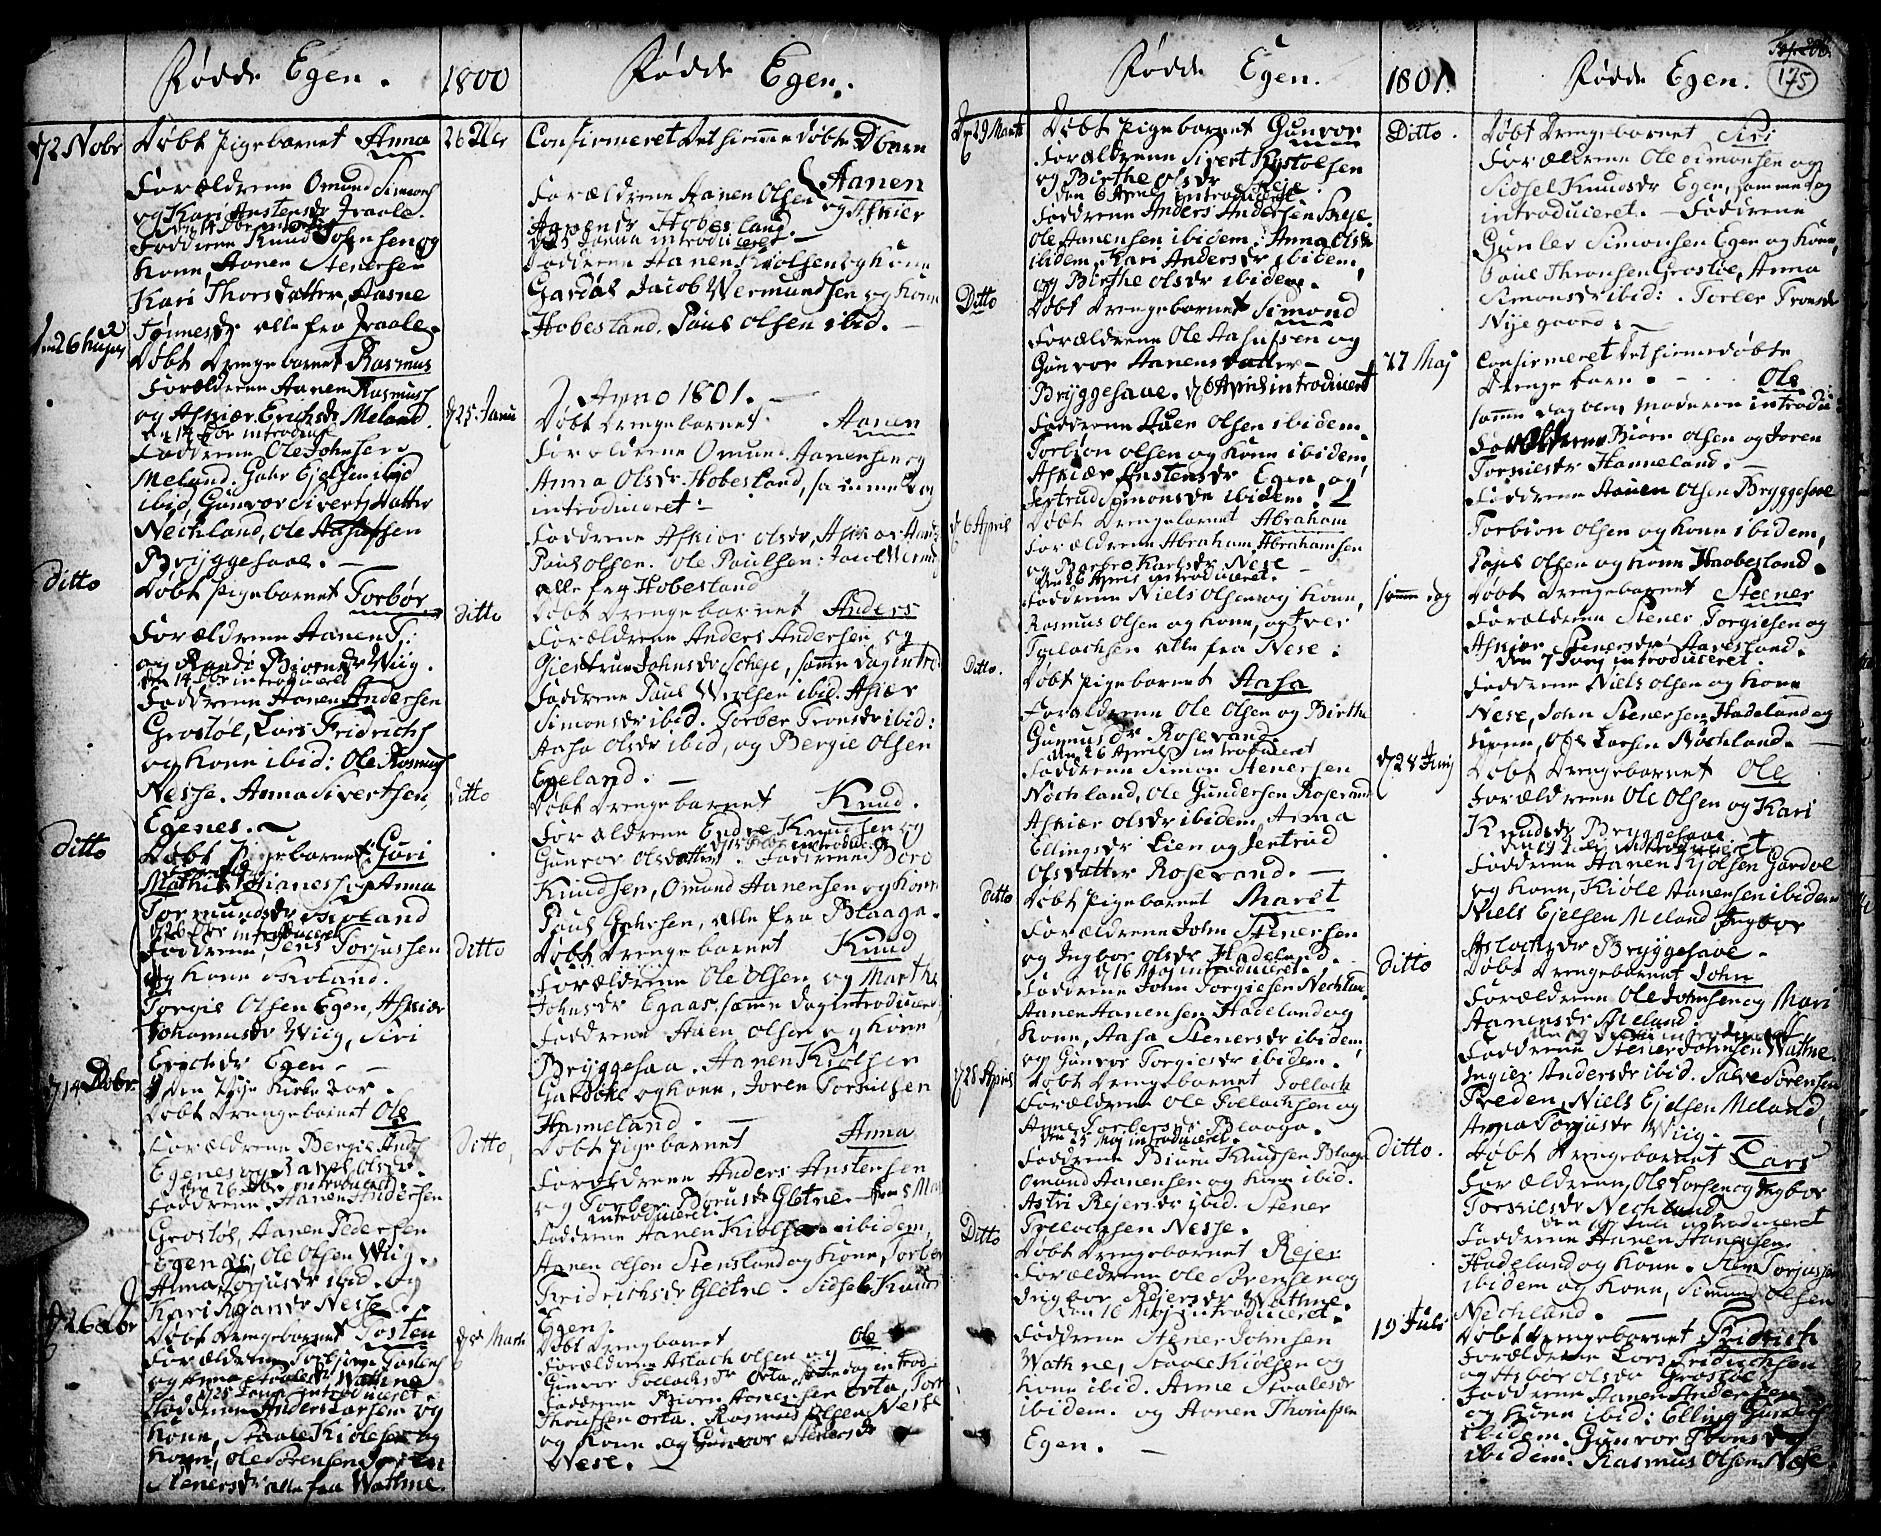 Fødde Egen.
d 2 Nobr
Døbt Pigebarnet Anna
Forældrene Omund Simons
og Kari Anstensdr Fraale.
Faddrene Knud Johnsen og
Kone, Aanen Stenersen
Kari Thorsdatter, Aasne
Tønnesdr alle fra Fraale.
den 26 hujus
Døbt Drengebarnet Rasmus
Forældrene Aanen Rasmuss
og Askiær Erichsdr Meland.
den 14 Dbr introduc
Faddrene Ole Johnsen
Meland. Gahr Ejelsen ibid
ibid, Gunvor Siverts Datter
Nechland, Ole Aasulfsen
Bryggesaae. —
Ditto
Døbt Pigebarnet Torbør
Forældrene Aanen T:
og Randi Biørnsdr Wiig.
den 14 Dbr introduceret
Faddrene Aanen Andersen
Grostøl, Lars Fridrichs
og Kone ibid: Ole Rasmuss
Nesse. Anna Sivertsen
Egenes. —
Ditto
Døbt Pigebarnet Guri
Forældre
Mathis Hansen og Anna
Tormundsdr Roland
d 26 Dbr introduceret
Faddrene, Jens Torjussen
og Kone Roland.
Torgis Olsen Egen, Askiær
Johannesdr Wiig, Siri
Erichsdr Egen. —
d 14 Dobr
Døbt Drengebarnet Ole
Forældrene Bergie Ands
Egenes og
den 26 Dbr introduceret
Faddrene. Aanen Andersen
Grostøl, Aanen Pedersen
Egenæs, Ole Olsen Wiig.
Anna Torjusdr ibid. og
Kari Nesse.
d 26 Dbr
Døbt Drengebarnet Tosten
Forældrene Torbjørn Tostens
og Anna Staalesdr Wathne
d 25 Janu introduceret
Faddrene Anders Larsen og
Kone, Staale Kiølsen og
Kone, Ole Sørensen
Stenersdr alle fra Wathne.
1800
Fødde Egen.
26 Dbr
Confirmeret Det hiemme døbte Dbarn
Aanen
Forældrene Aanen Olsen og Askier
Aanensdr Hobesland.
d 25 Janua introduceret
Faddrene Aanen Kiølsen og Kone
Gardøl Jacob Wermundsen og Kone
Hobesland. Paul Olsen ibid. —
Anno 1801. —
d 25 Janu
Døbt Drengebarnet Aanen
Forældrene Omund Aanensen og
Anna Olsdr Hobesland, samme dag
introduceret —
Faddrene Askiær Olsdr, Askiær Aanes
Paul Olsen. Ole Paulsen. Jacob Wermd
alle fra Hobesland
Ditto
Døbt Drengebarnet Anders
Forældrene Anders Andersen og
Giertrue Johnsdr Scheje, samme dag introd
Faddrene Paul Werlsen ibid. Askiær
Simonsdr ibid. Torber Tronsdr ibid:
Aasa Olsdr ibid, og Bergie Olsen
Egeland. —
Ditto
Døbt Drengebarnet Knud.
Forældrene Endre Knudsen og
Gunvor Olsdatter. Faddrene
Knudsen, Omund Aanensen og Kone
Paul Gahrsen, alle fra Blaaga.
Ditto
Døbt Drengebarnet Knud
Forældrene Ole Olsen og Marthe
Johnsdr Egaas, samme dag introduceret
Faddrene Auen Olsen og Kone
Bryggesaa. Aanen Kiølsen
Gardøle og Kone, Joren Torkilsen
Hanneland. —
Ditto,
Døbt Pigebarnet Anna
Forældrene Anders Anstensen
og Torber Glotne. — den 5 Mai
introduceret.
Faddrene Aanen Kiølsen ibidem,
Aanen Olson Stensland og Kone, Torber
Fridrichsdr Gletne. Sidsel Knuds
Egen.
Døbt Drengebarnet Ole
Forældrene Aslach Olsen og
Gunvor Tollachsdr Orta, samme dag introd
Faddrene Biorn Aanensen Orta, Tore
Thorissen Orta. Rasmus Olsen Nesse
og Kone og Gunvor Stenersdr
Nese. —
Fødde Egen.
d 29 Marts
Døbt Pigebarnet Gunvor
Forældrene Sivert Rystolsen
og Birthe Olsdr Skeje.
den 6 April introduceret.
Faddrene Anders Andersen Skeje
Ole Aanensen ibidem. Anna Olsdr
ibidem, Kari Andersdr ibidem,
og Birthe Olsdr ibidem.
Ditto
Døbt Drengebarnet Simond
Forældrene Ole Aasulfsen og
Gunvor Aanensdatter —
Bryggesaae. d 6 April introduceret
Faddrene Auen Olsen ibidem.
Torbiøn Olsen og Kone ibidem
Askiær Anstensdr Egen, og
Jertrud Simonsdr ibidem.
d 6 April
Døbt Drengebarnet Abraham
Forældrene Abraham Abrahamsen
og Barbro Karlsdr Nese —
den 26 April introduceret.
Faddrene Niels Olsen og Kone,
Rasmus Olsen og Kone, og Iver
Tollachsen alle fra Nese.
Ditto.
Døbt Pigebarnet Aasa
Forældrene Ole Olsen og Birthe
Gunnusdr Roseland.
den 26 April introduceret
Faddrene Simon Stenersen
Nochland, Ole Gundersen Roseland
Askiær Olsdr ibidem, Anna
Ellingsdr Eien og Jertrud
Olsdatter Roseland. —
Ditto
Døbt Pigebarnet Maret
Forældrene John Stenersen
og Ingbor Olsdr Hadeland.
d 16 Maj introduceret.
Faddrene John Torgiesen Nechland
Aanen Aanensen Hadeland og
Kone, Aasa Stenersdr ibidem,
og Gunvor Torgiesdr ibidem.
d 28 April
Døbt Drengebarnet Tollach
Forældrene Ole Tollachsen og
Anne Torbersdr Blaaga.
den 25 Maj introduceret.
Faddrene Biørn Knudsen Blaaga
Omund Aanensen og Kone ibid.
Astri Rejersdr ibid. Stener
Tollachsen Nesse.
Ditto
Døbt Drengebarnet Rejer
Forældrene Ole Sørensen og
Ingbor Rejersdr Wathne.
den 16 Maj introduceret.
Faddrene Stener Johnsen
Wathne, Staale Kiølsen og
Kone ibid. Anne Staalesdr
ibidem. og Aanen Thorissen
Egen. —
1801.
Fødde Egen.
175
Ditto.
Døbt Drengebarnet Siri
Forældrene Ole Simonsen og
Sidsel Knudsdr Egen, samme dag
introduceret. — Faddrene
Gunler Simonsen Egen og Kone,
Paul Thronsen Grostøe, Anna
Simonsdr ibid:. Torber Tronsdr
Nyegaard. —
d 7 Maj
Confirmeret Det hiemedøbte
Drengebarn. — Ole
samme dag blev Moderen introdu:
Forældrene Biørn Olsen og Joren
Torkilsdr Hanneland. —
Faddrene Aanen Olsen Bryggesaae
Torbion Olsen og Kone ibidem,
Paul Olsen og Kone Haabesland.
samme dag
Døbt Drengebarnet Steener
Forældrene Stener Torgiesen og
Askiær Stenersdr Aavesland.
den 7 Juny introduceret.
Faddrene Niels Olsen og Kone
Nese, John Stenersen Hadeland og
Kone, Ole Larsen Nochland. —
d 28 Juny
Døbt Drengebarnet Ole
Forældrene Ole Olsen og Kari
Knudsdr Bryggesaae.
den 19 Juli introduceret
Faddrene Aanen Kjølsen Gardøl
og Kone, Kiøle Aanensen ibidem
Niels Ejelsen Meland Ingbor
Aslachsdr Bryggesaae.
Ditto
Døbt Drengebarnet John
Forældrene Ole Johnsen og Mari
Aanensdr Meland.
Faddrene Stener Johnsen Wathne.
Ingier Andersdr ibid. Salve Sørensen
Treden, Niels Ejelsen Meland,
Anna Torjusdr Wiig. —
Ditto.
Døbt Drengebarnet Lars
Forældrene, Ole Larsen og Ingbor
Torkilsdr Nechland.
Faddrene Aanen Aanensen
Hadeland og Kone. Sten Torjussen
ibidem og Kone, Simund Olsen
Nechland. —
19 Juli
Døbt Drengebarnet Fridrich
Forældrene Lars Fridrichsen
og Asbor Olsdr Grostøl
Faddrene Aanen Andersen
og Kone ibid: Elling Gunders
ibidem. Gunvor Tronsdr
ibidem. Rasmus Olsen Nese.